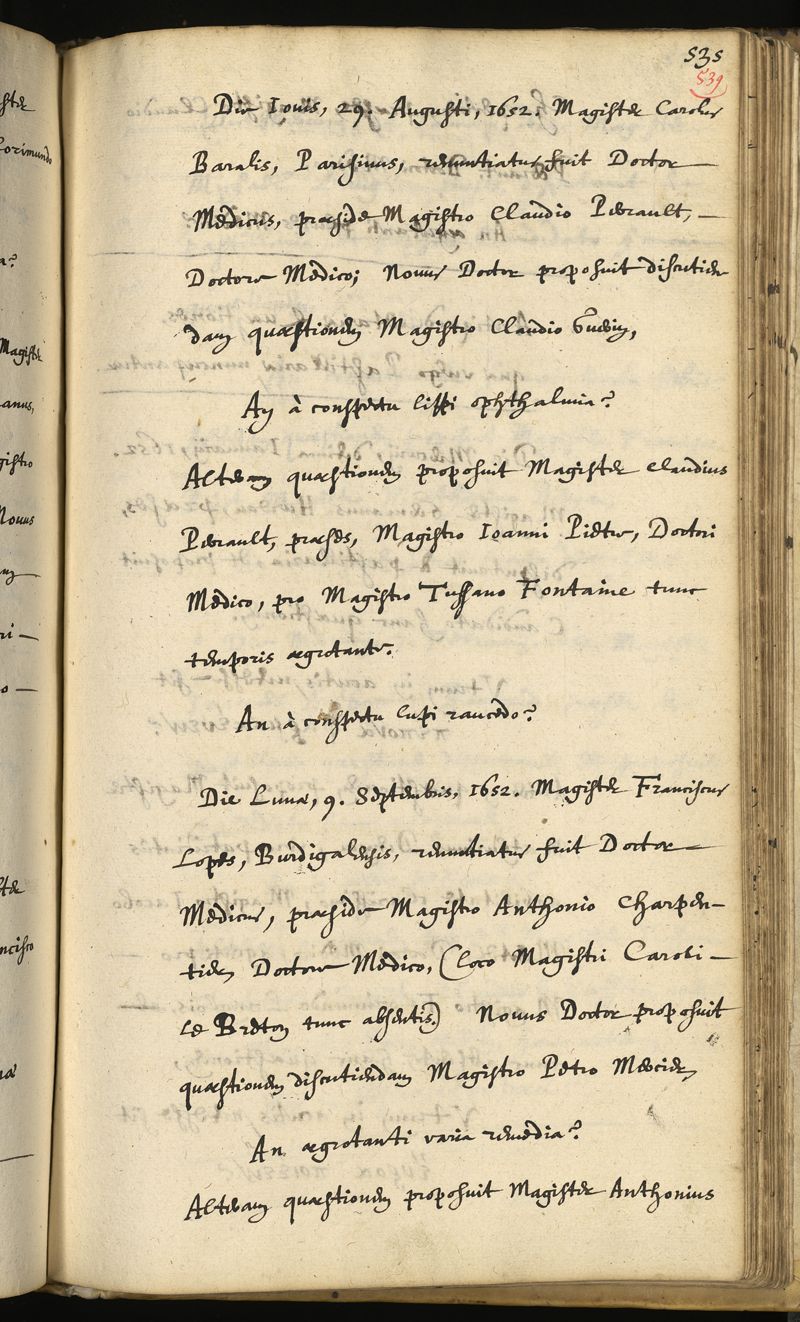 535
539
Die Iouis, 29. Augusti, 1652. Magister Carolus
Baralis, Parisinus, renuntiatus fuit Doctor
Medicus, præside Magistro Claudio Perrault,
Doctore Medico; Nouus Doctor proposuit discutien
dam quæstionem Magistro Claudio
An à conspectu lippi ophthalmia?
Alteram quæstionem proposuit Magister Claudius
Perrault, præses, Magistro Ioanni Pietre, Doctori
Medico, pro Magistro Tussano Fontaine tunc
temporis ægrotante.
An à conspectu lupi raucedo?
Die Lunæ, 9. Septembris, 1652. Magister Franciscus
Lopes, Burdigalensis, renuntiatus fuit Doctor
Medicus, præside Magistro Anthonio Charpen-
tier Doctore Medico, (loco Magistri Caroli
le Breton tunc absentis.) Nouus Doctor proposuit
quæstionem discutiendam Magistro Petro Mercier,
An ægrotanti varia remedia?
Alteram quæstionem proposuit Magister Anthonius
ster
lorimundo
a?
Magister
anus,
gistro
Nouus
ri
o
ter
ncisco